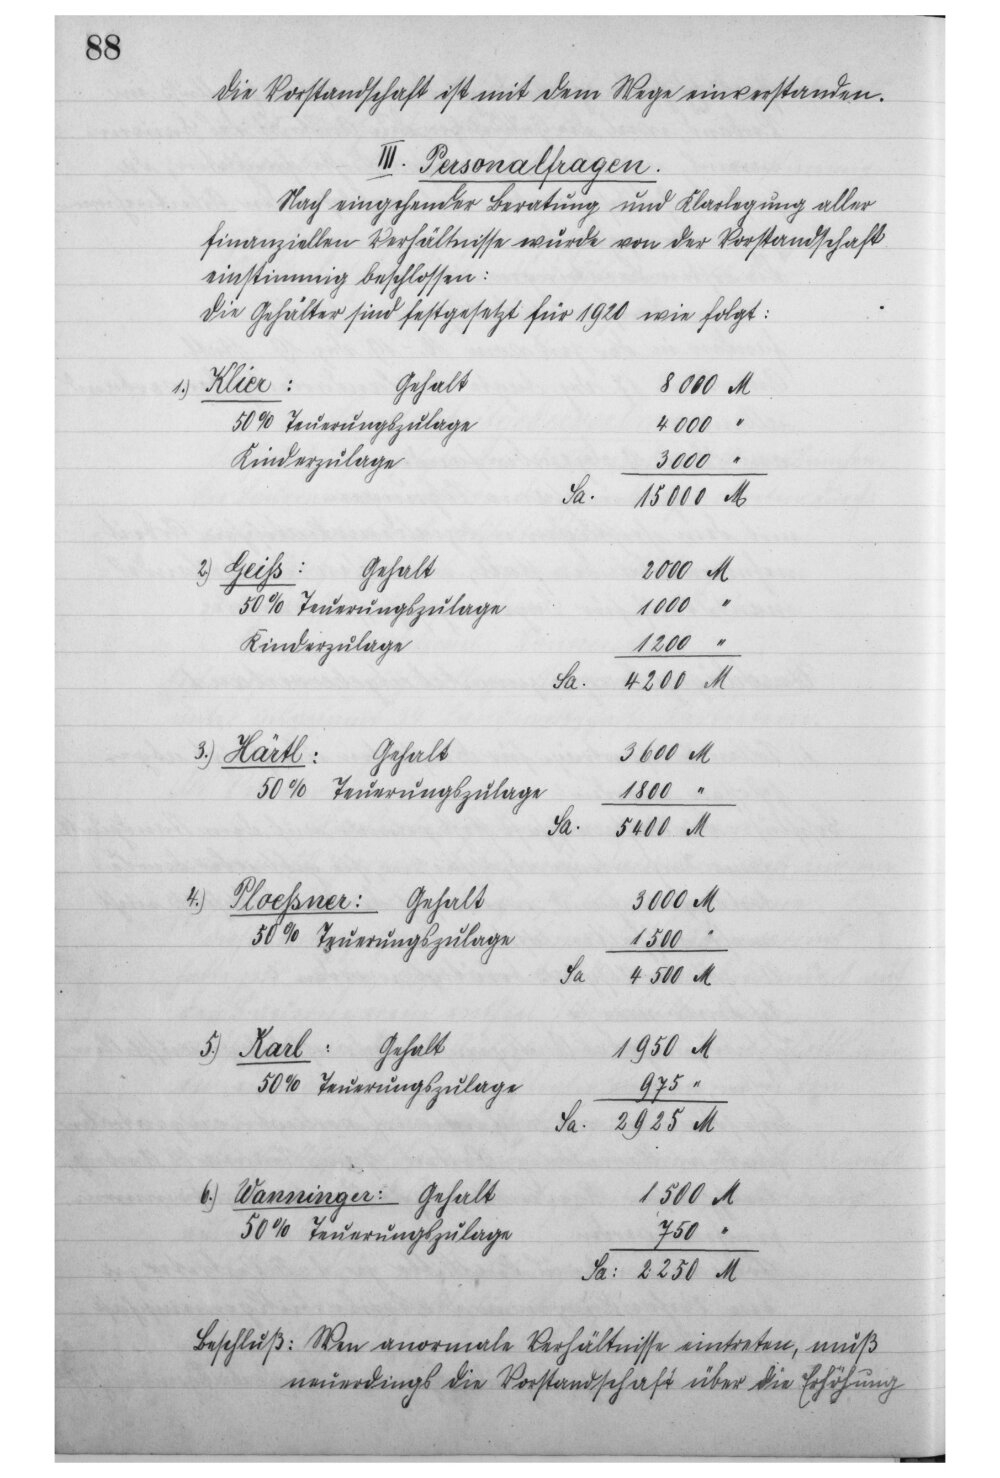 88
die Vorstandschaft ist mit dem Wege einverstanden.
III. Personalfragen.
Nach eingehender Beratung und Klarlegung aller
finanziellen Verhältnisse wurde von der Vorstandschaft
einstimmig beschlossen:
die Gehälter sind festgesetzt für 1920 wie folgt:
1.) Klier: Gehalt 8000 M
50% Teuerungszulage 4000 "
Kinderzulage 3000 "
Sa. 15000 M
2) Geiß: Gehalt 2000 M
50% Teuerungszulage 1000 "
Kinderzulage 1200 "
Sa. 4200 M
3.) Härtl: Gehalt 3600 M
50% Teuerungszulage 1800 "
Sa. 5400 M
4.) Ploeßner: Gehalt 3000 M
50% Teuerungszulage 1500 "
Sa 4500 M
5.) Karl: Gehalt 1950 M
50% Teuerungszulage 975 "
Sa. 2925 M
6.) Wanninger: Gehalt 1500 M
50% Teuerungszulage 750 "
Sa: 2250 M
Beschluß: Wen anormale Verhältnisse eintreten, muß
neuerdings die Vorstandschaft über die Erhöhung